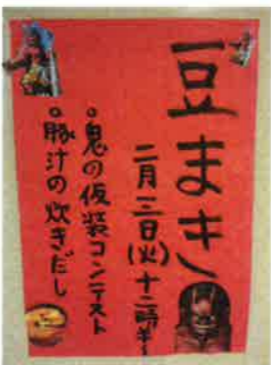 豆まき
二月三日(火)十二時半〜
・鬼の仮装コンテスト
・豚汁の炊きだし